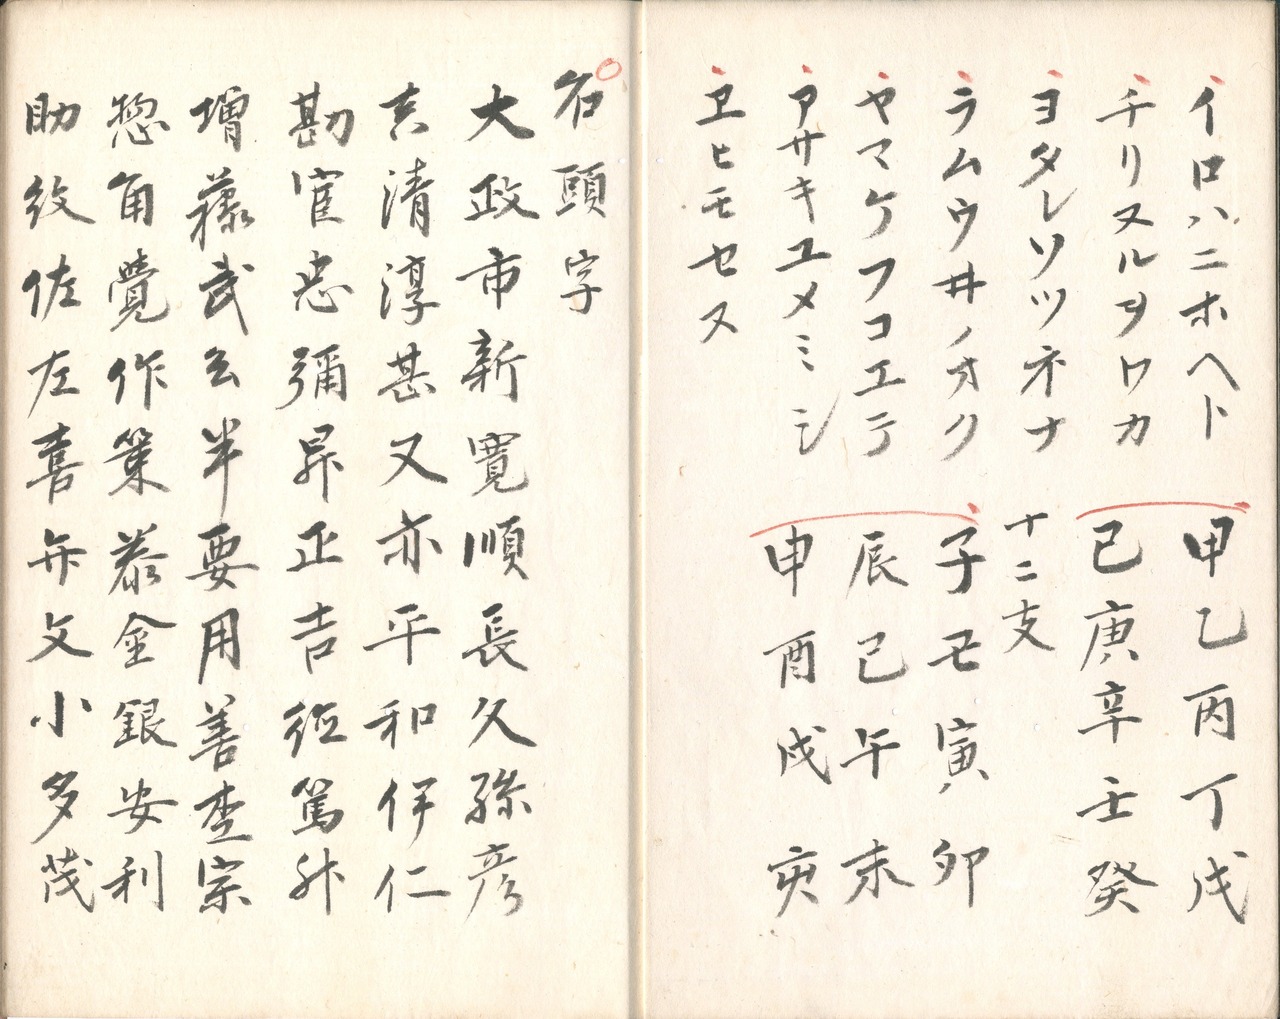 イロハニホヘト
チリヌルヲワカ
ヨタレソツネナ
ラムウ井ノオク
ヤマケフコエテ
アサキユメミシ
ヱヒモセス
甲乙丙丁戊
己庚辛壬癸
十二支
子丑寅卯
辰巳午未
申酉戌亥
名頭字
大政市新寛順長久孫彦
吉清淳甚又亦平和伊仁
勘官忠彌昇正吉經篤升
増藤武玄半要用善杢宗
惣角覺作策恭金銀安利
助紋佐左喜弁文小多茂